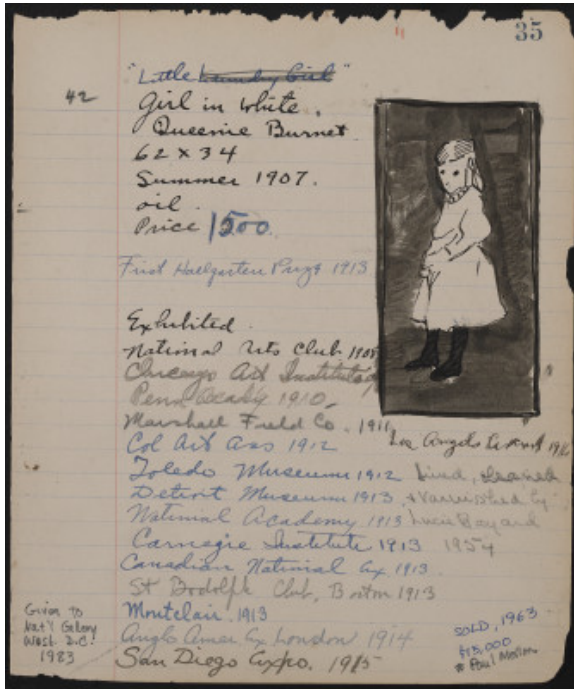 35
"Little Laundry Girl"
42
Girl in White.
Queenie Burnet
62 x 34
Summer 1907.
oil.
Price 1500
First Hallgarten Prize 1913
Exhibited.
National Arts Club 1908
Chicago Art Institute
Penn Acady 1910
Marshall Field Co. 1911
Los Angeles
Col Art Ass 1912
Toledo Museum 1912 Lined, cleaned
Detroit Museum 1913 + Varnished by
National Academy 1913 Lucie Bayard
Carnegie Institute 1913 1954
Canadian National Ex 1913
St Bodolph Club, Boston 1913
Montclair. 1913
Anglo Amer Ex London 1914
San Diego Expo. 1915
Given to
Nat'l Gallery
Wash. D.C.
1983
SOLD, 1963
$15,000
* Paul Mellon